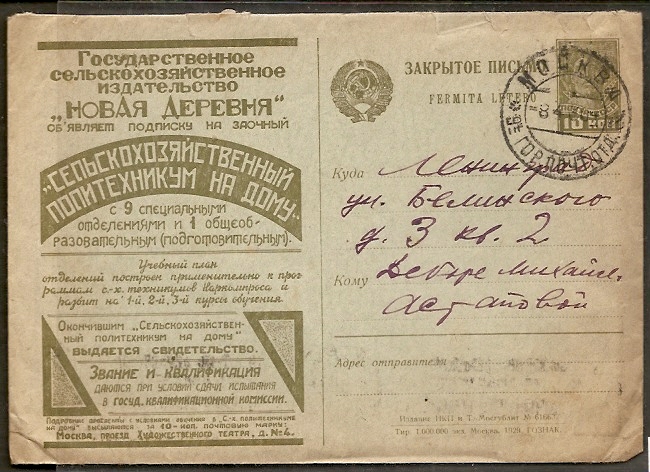 Государственное
сельскохозяйственное
издательство
„НОВАЯ ДЕРЕВНЯ"
об'являет подписку на заочный
„СЕЛЬСКОХОЗЯЙСТВЕННЫЙ
ПОЛИТЕХНИКУМ НА ДОМУ"
с 9 специальными
отделениями и 1 общеоб-
разовательным (подготовительным).
Учебный план
отделений построен применительно к прог
раммам с.-х. техникумов Наркомпроса и
разбит на 1-й, 2-й, 3-й курсы обучения.
Окончившим „Сельскохозяйствен-
ный политехникум на дому"
выдается свидетельство.
Звание и квалификация
даются при условии сдачи испытания
в госуд. квалификационной комиссии.
Подробные проспекты с условиями обучения в „С-х политехникуме
на дому" высылаются за 10-коп. почтовую марку:
Москва, проезд Художественного театра, д. № 4.
ЗАКРЫТОЕ ПИСЬМО
FERMITA LETERO
МОСКВА
ГОРПОЧТ ОТД.
10 КОП
Куда Ленинград
ул. Белинского
д. 3 кв. 2
Кому Деборе Михайл.
Астаповой
Адрес отправителя
Издание НКП и Т. Мосгублит №
Тир. 1.000.000 экз. Москва. 1929. ГОЗНАК.